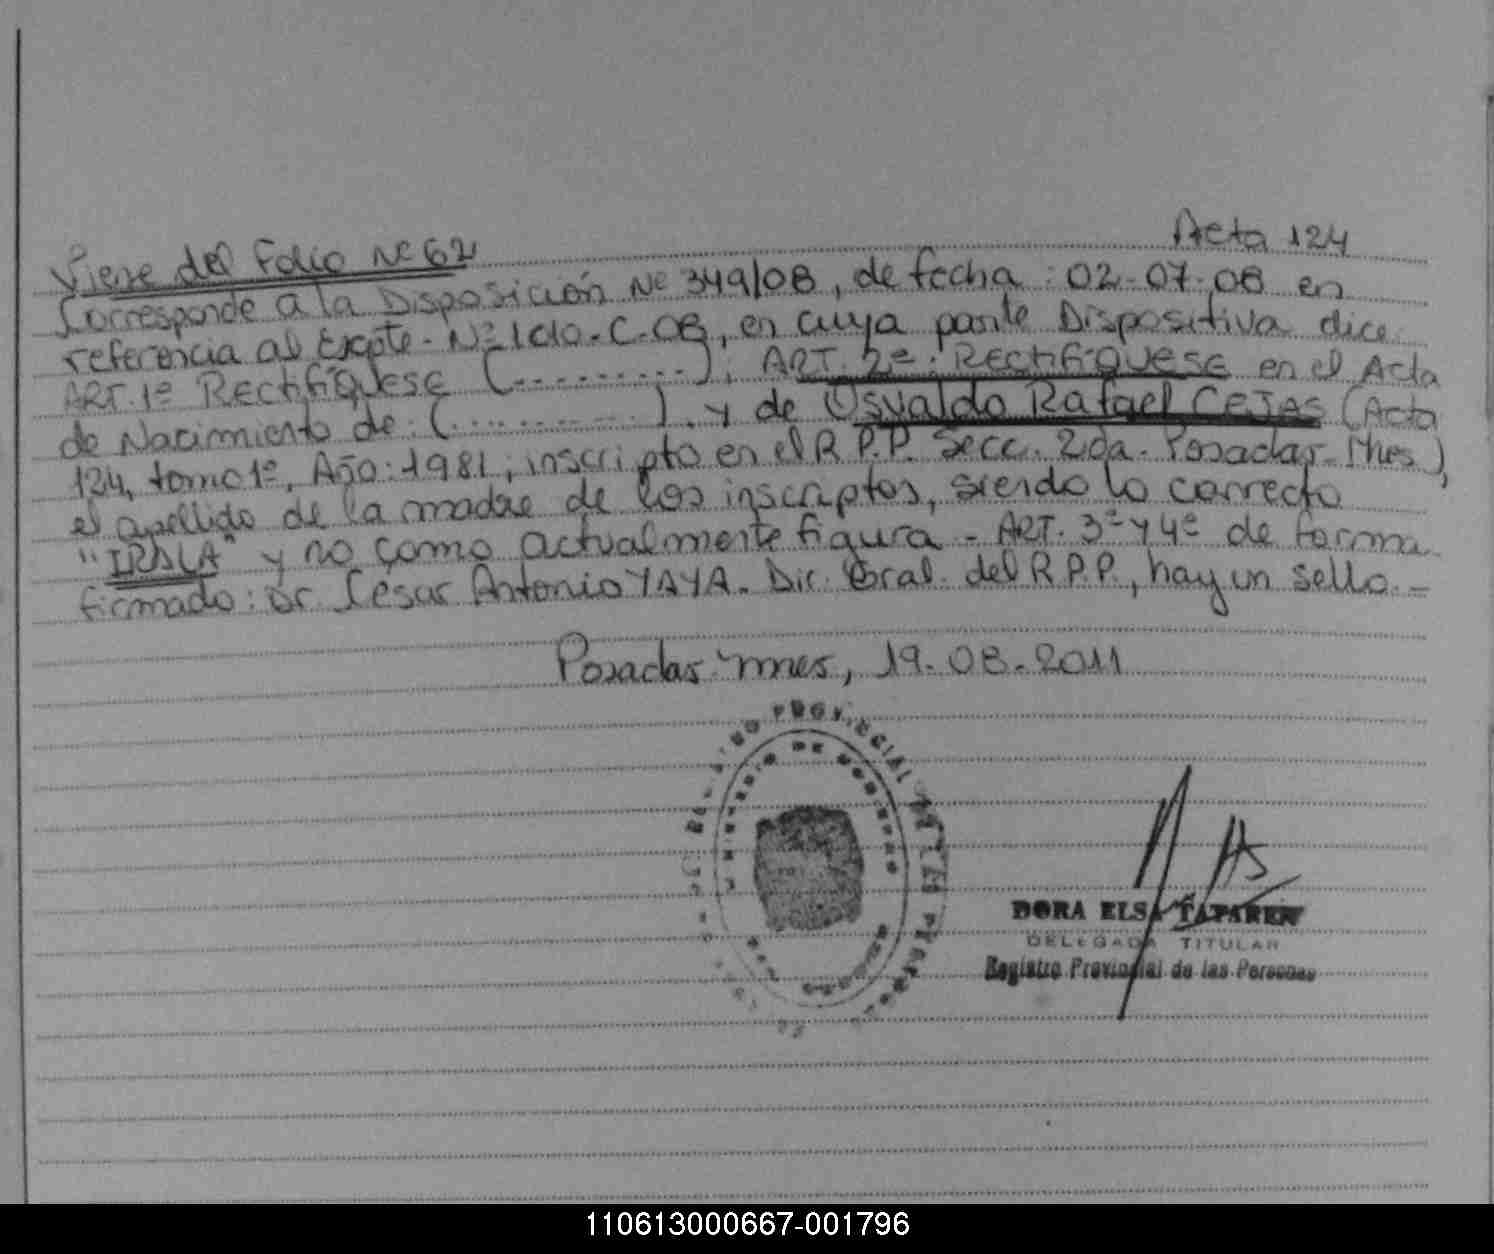 Acta 124
Viene del Folio Nº 62
Corresponde a la Disposición Nº 349/08, de fecha: 02-07-08 en
referencia al Expte. Nº 1010-C-08, en cuya parte Dispositiva dice:
ART. 1º RECTIFÍQUESE (..........); ART. 2º: RECTIFÍQUESE en el Acta
de Nacimiento de: (..............) y de Osvaldo Rafael CEJAS (Acta
124, tomo 1º, Año: 1981, inscripto en el R.P.P. Secc. 2da. Posadas-Mnes),
el apellido de la madre de los inscriptos, siendo lo correcto
"IRALA" y no como actualmente figura - ART. 3º y 4º de forma
firmado: Dr. César Antonio YAYA. Dir. Gral. del R.P.P., hay un sello.-
Posadas-mnes, 19-08-2011
PROVINCIAL DE LAS
DORA ELSA
DELEGADA TITULAR
Registro Provincial de las Personas
110613000667-001796